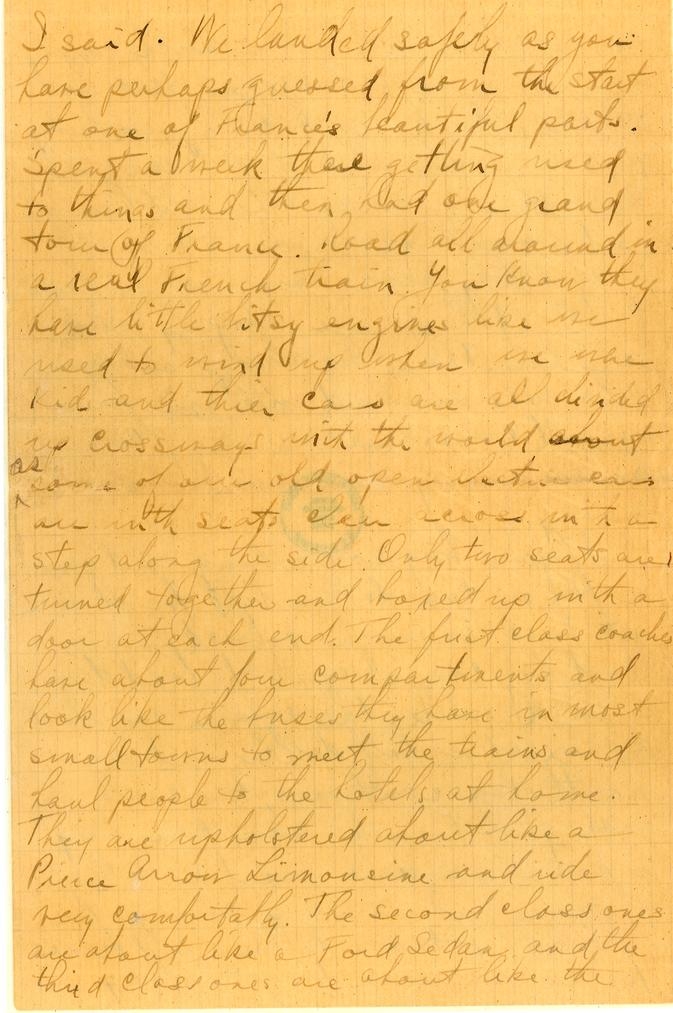 I said. We landed safely as you
have perhaps guessed from the start
at one of France's beautiful ports.
Spent a week there getting used
to things and then had one grand
tour of France. Road all around in
a real French train. You know they
have little bitsy engines like we
used to wind up when we were
kid and thier cars are al divided
up crossways with the world about
as
some of our old open cars
are with seats clear across with a
step along the side. Only two seats are
turned together and boxed up with a
door at each end. The first class coaches
have about four compartments and
look like the buses they have in most
small towns to meet the trains and
haul people to the hotels at home.
They are upholstered about like a
Pierce Arrow Limousine and ride
very comfortably. The second class ones
are about like a Ford Sedan and the
third class ones are about like the